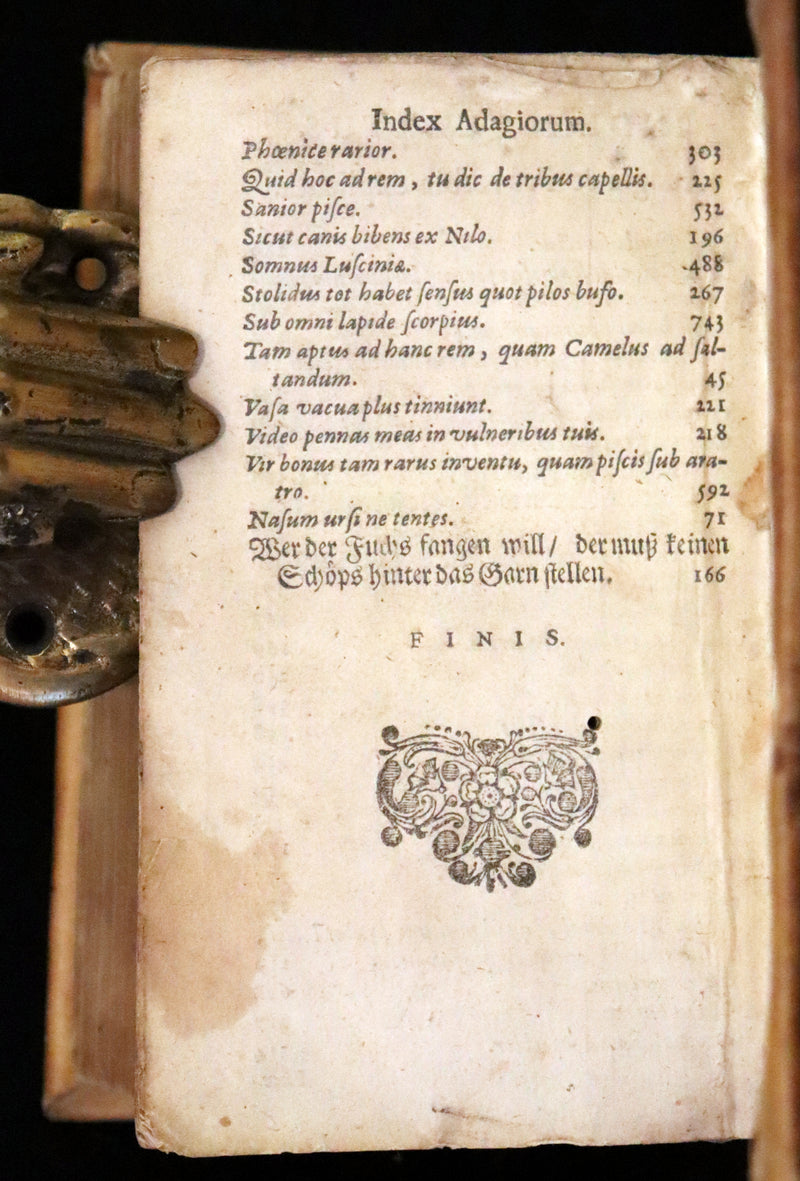 Index Adagiorum.
Phœnice rarior. 303
Quid hoc ad rem, tu dic de tribus capellis. 225
Sanior piſce. 532
Sicut canis bibens ex Nilo. 196
Somnus Luſciniæ. 488
Stolidus tot habet ſenſus quot pilos bufo. 267
Sub omni lapide ſcorpius. 743
Tam aptus ad hanc rem, quam Camelus ad ſal-
tandum. 45
Vaſa vacua plus tinniunt. 221
Video pennas meas in vulneribus tuis. 218
Vir bonus tam rarus inventu, quam piſcis ſub ara-
tro. 592
Naſum urſi ne tentes. 71
Wer der Fuchs fangen will/ der muß keinen
Schöps hinter das Garn ſtellen. 166
FINIS.